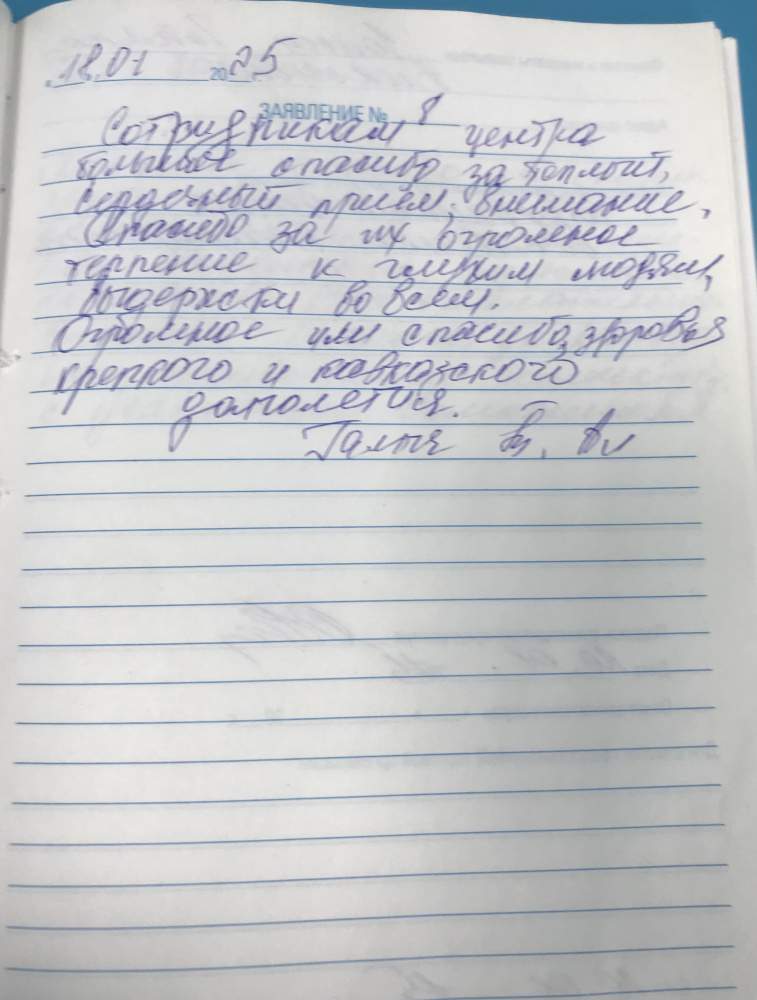 18.01 2025 г.
ЗАЯВЛЕНИЕ № 8
Сотрудникам центра
большое спасибо за теплый,
сердечный приём, внимание,
Спасибо за их огромное
терпение к глухим людям,
выдержки во всем.
Огромное им спасибо, здоровья
крепкого и кавказского
долголетия.